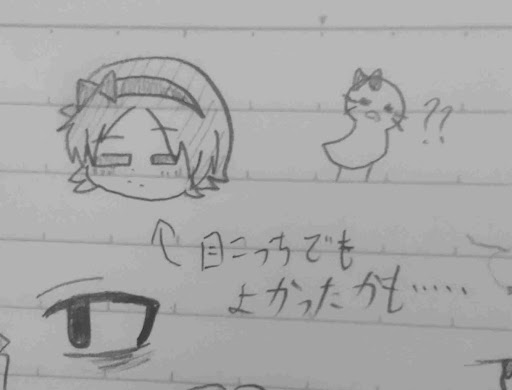 ??
目こっちでも
よかったかも……